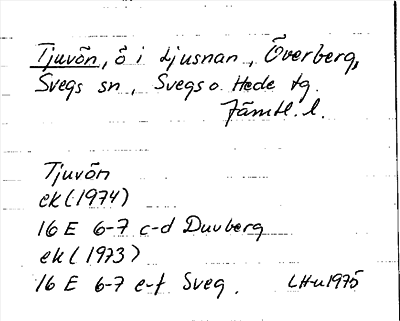 Tjuvön, ö i Ljusnan, Överberg,
Svegs sn, Svegs o. Hede tg.
Jämtl. l.
Tjuvön
ek (1974)
16 E 6-7 c-d Duvberg
ek (1973)
16 E 6-7 e-f Sveg. LHu 1975